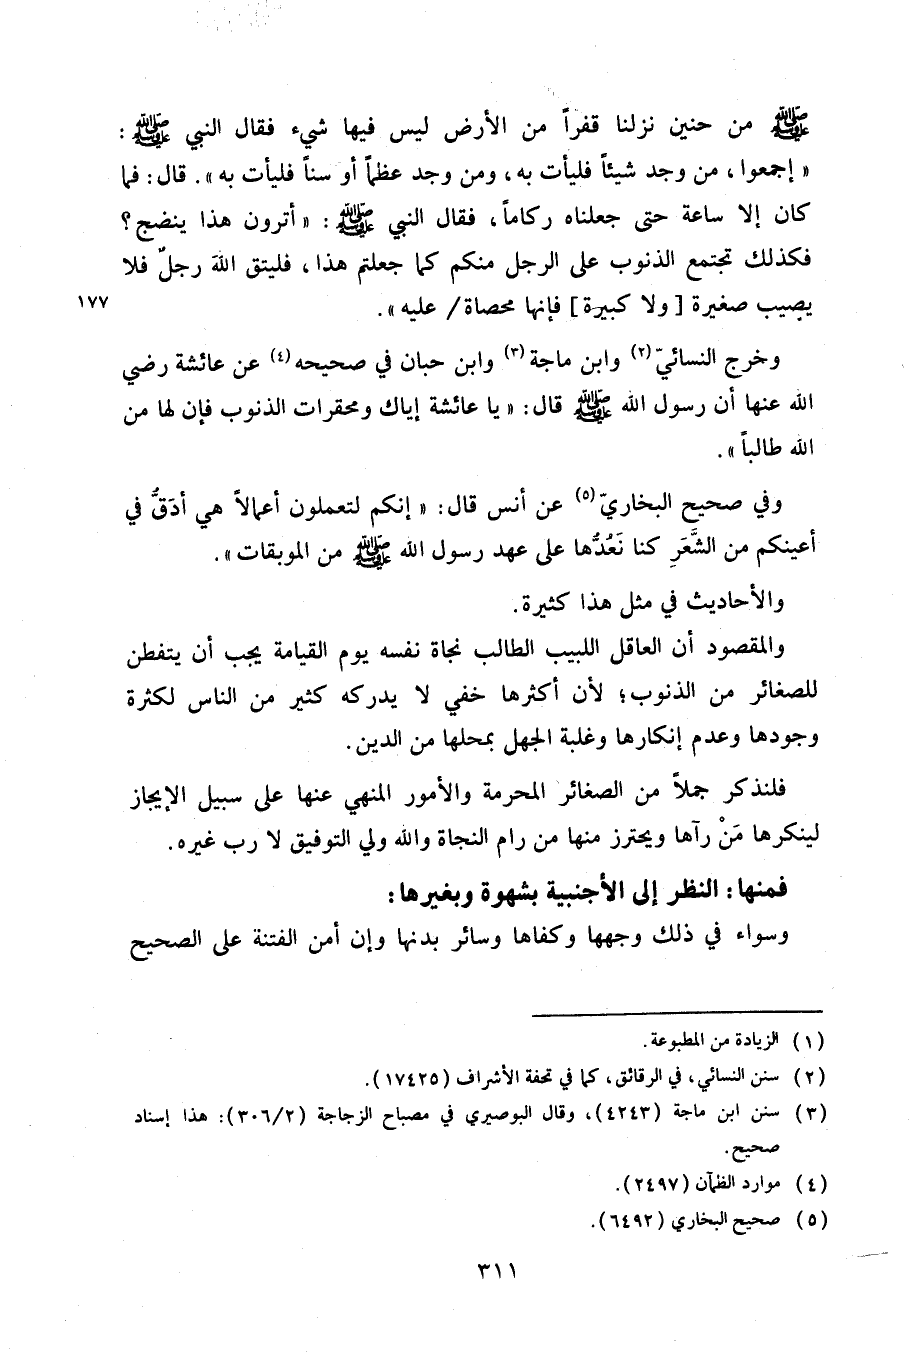 ﷺ من حنين نزلنا قفراً من الأرض ليس فيها شيء فقال النبي ﷺ :
« إجمعوا ، من وجد شيئاً فليأت به ، ومن وجد عظماً أو سناً فليأت به » . قال : فما
كان إلا ساعة حتى جعلناه ركاماً ، فقال النبي ﷺ : « أترون هذا ينضج ؟
فكذلك تجتمع الذنوب على الرجل منكم كما جعلتم هذا ، فليتق اللهَ رجلٌ فلا
يصيب صغيرة [ ولا كبيرة ] فإنها محصاة / عليه » .
١٧٧
وخرج النسائيّ (٢) وابن ماجة (٣) وابن حبان في صحيحه (٤) عن عائشة رضي
الله عنها أن رسول الله ﷺ قال : « يا عائشة إياك ومحقرات الذنوب فإن لها من
الله طالباً » .
وفي صحيح البخاريّ (٥) عن أنس قال : « إنكم لتعملون أعمالاً هي أدَقُّ في
أعينكم من الشَّعَرِ كنا نَعُدُّها على عهد رسول الله ﷺ من الموبقات » .
والأحاديث في مثل هذا كثيرة .
والمقصود أن العاقل اللبيب الطالب نجاة نفسه يوم القيامة يجب أن يتفطن
للصغائر من الذنوب ؛ لأن أكثرها خفي لا يدركه كثير من الناس لكثرة
وجودها وعدم إنكارها وغلبة الجهل بمحلها من الدين .
فلنذكر جملاً من الصغائر المحرمة والأمور المنهي عنها على سبيل الإيجاز
لينكرها مَنْ رآها ويحترز منها من رام النجاة والله ولي التوفيق لا رب غيره .
فمنها : النظر إلى الأجنبية بشهوة وبغيرها :
وسواء في ذلك وجهها وكفاها وسائر بدنها وإن أمن الفتنة على الصحيح
(١) الزيادة من المطبوعة .
(٢) سنن النسائي ، في الرقائق ، كما في تحفة الأشراف (١٧٤٢٥) .
(٣) سنن ابن ماجة (٤٢٤٣) ، وقال البوصيري في مصباح الزجاجة (٣٠٦/٢) : هذا إسناد
صحيح .
(٤) موارد الظمآن (٢٤٩٧) .
(٥) صحيح البخاري (٦٤٩٢) .
٣١١